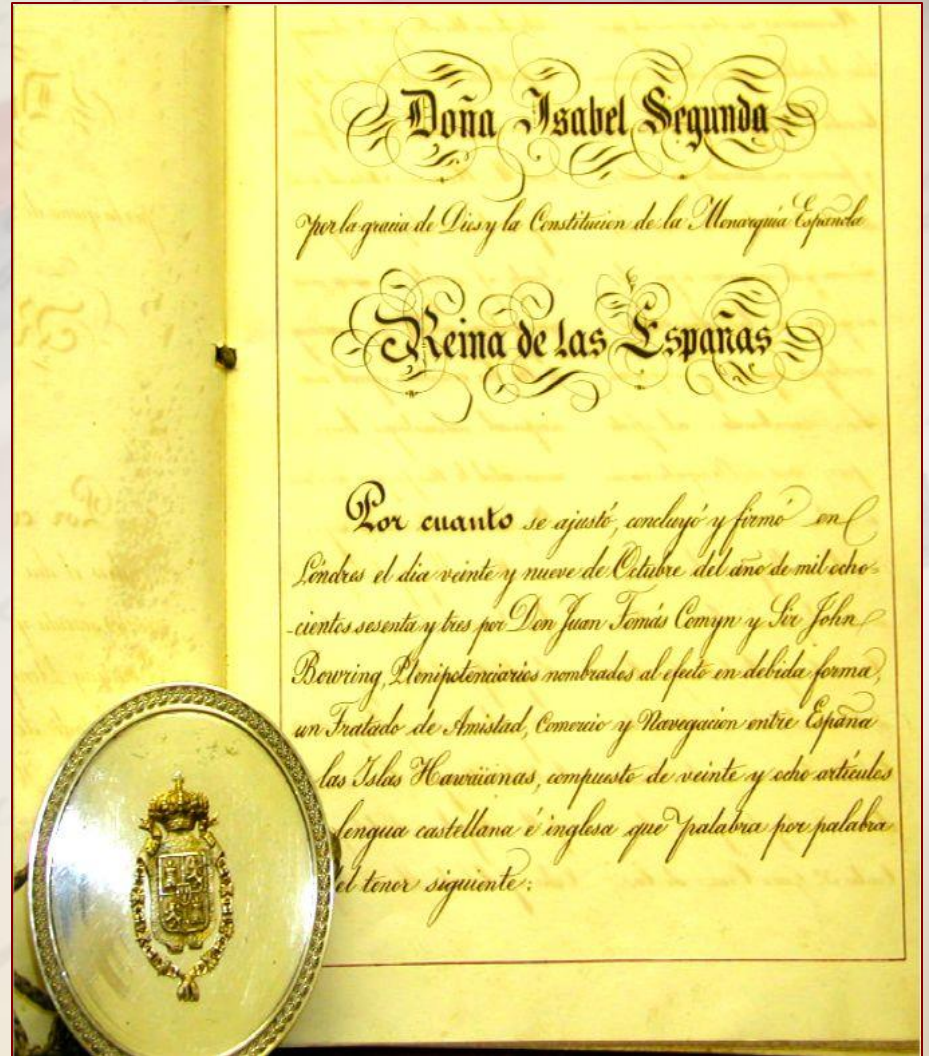 Doña Isabel Segunda
por la gracia de Dios y la Constitucion de la Monarquía Española
Reina de las Españas
Por cuanto se ajustó, concluyó y firmó en
Lóndres el dia veinte y nueve de Octubre del año de mil ocho-
-cientos sesenta y tres por Don Juan Tomás Comyn y Sir John
Bowring, Plenipotenciarios nombrados al efecto en debida forma,
un Tratado de Amistad, Comercio y Navegacion entre España
las Islas Hawaiianas, compuesto de veinte y ocho artículos
lengua castellana é inglesa que palabra por palabra
el tenor siguiente: